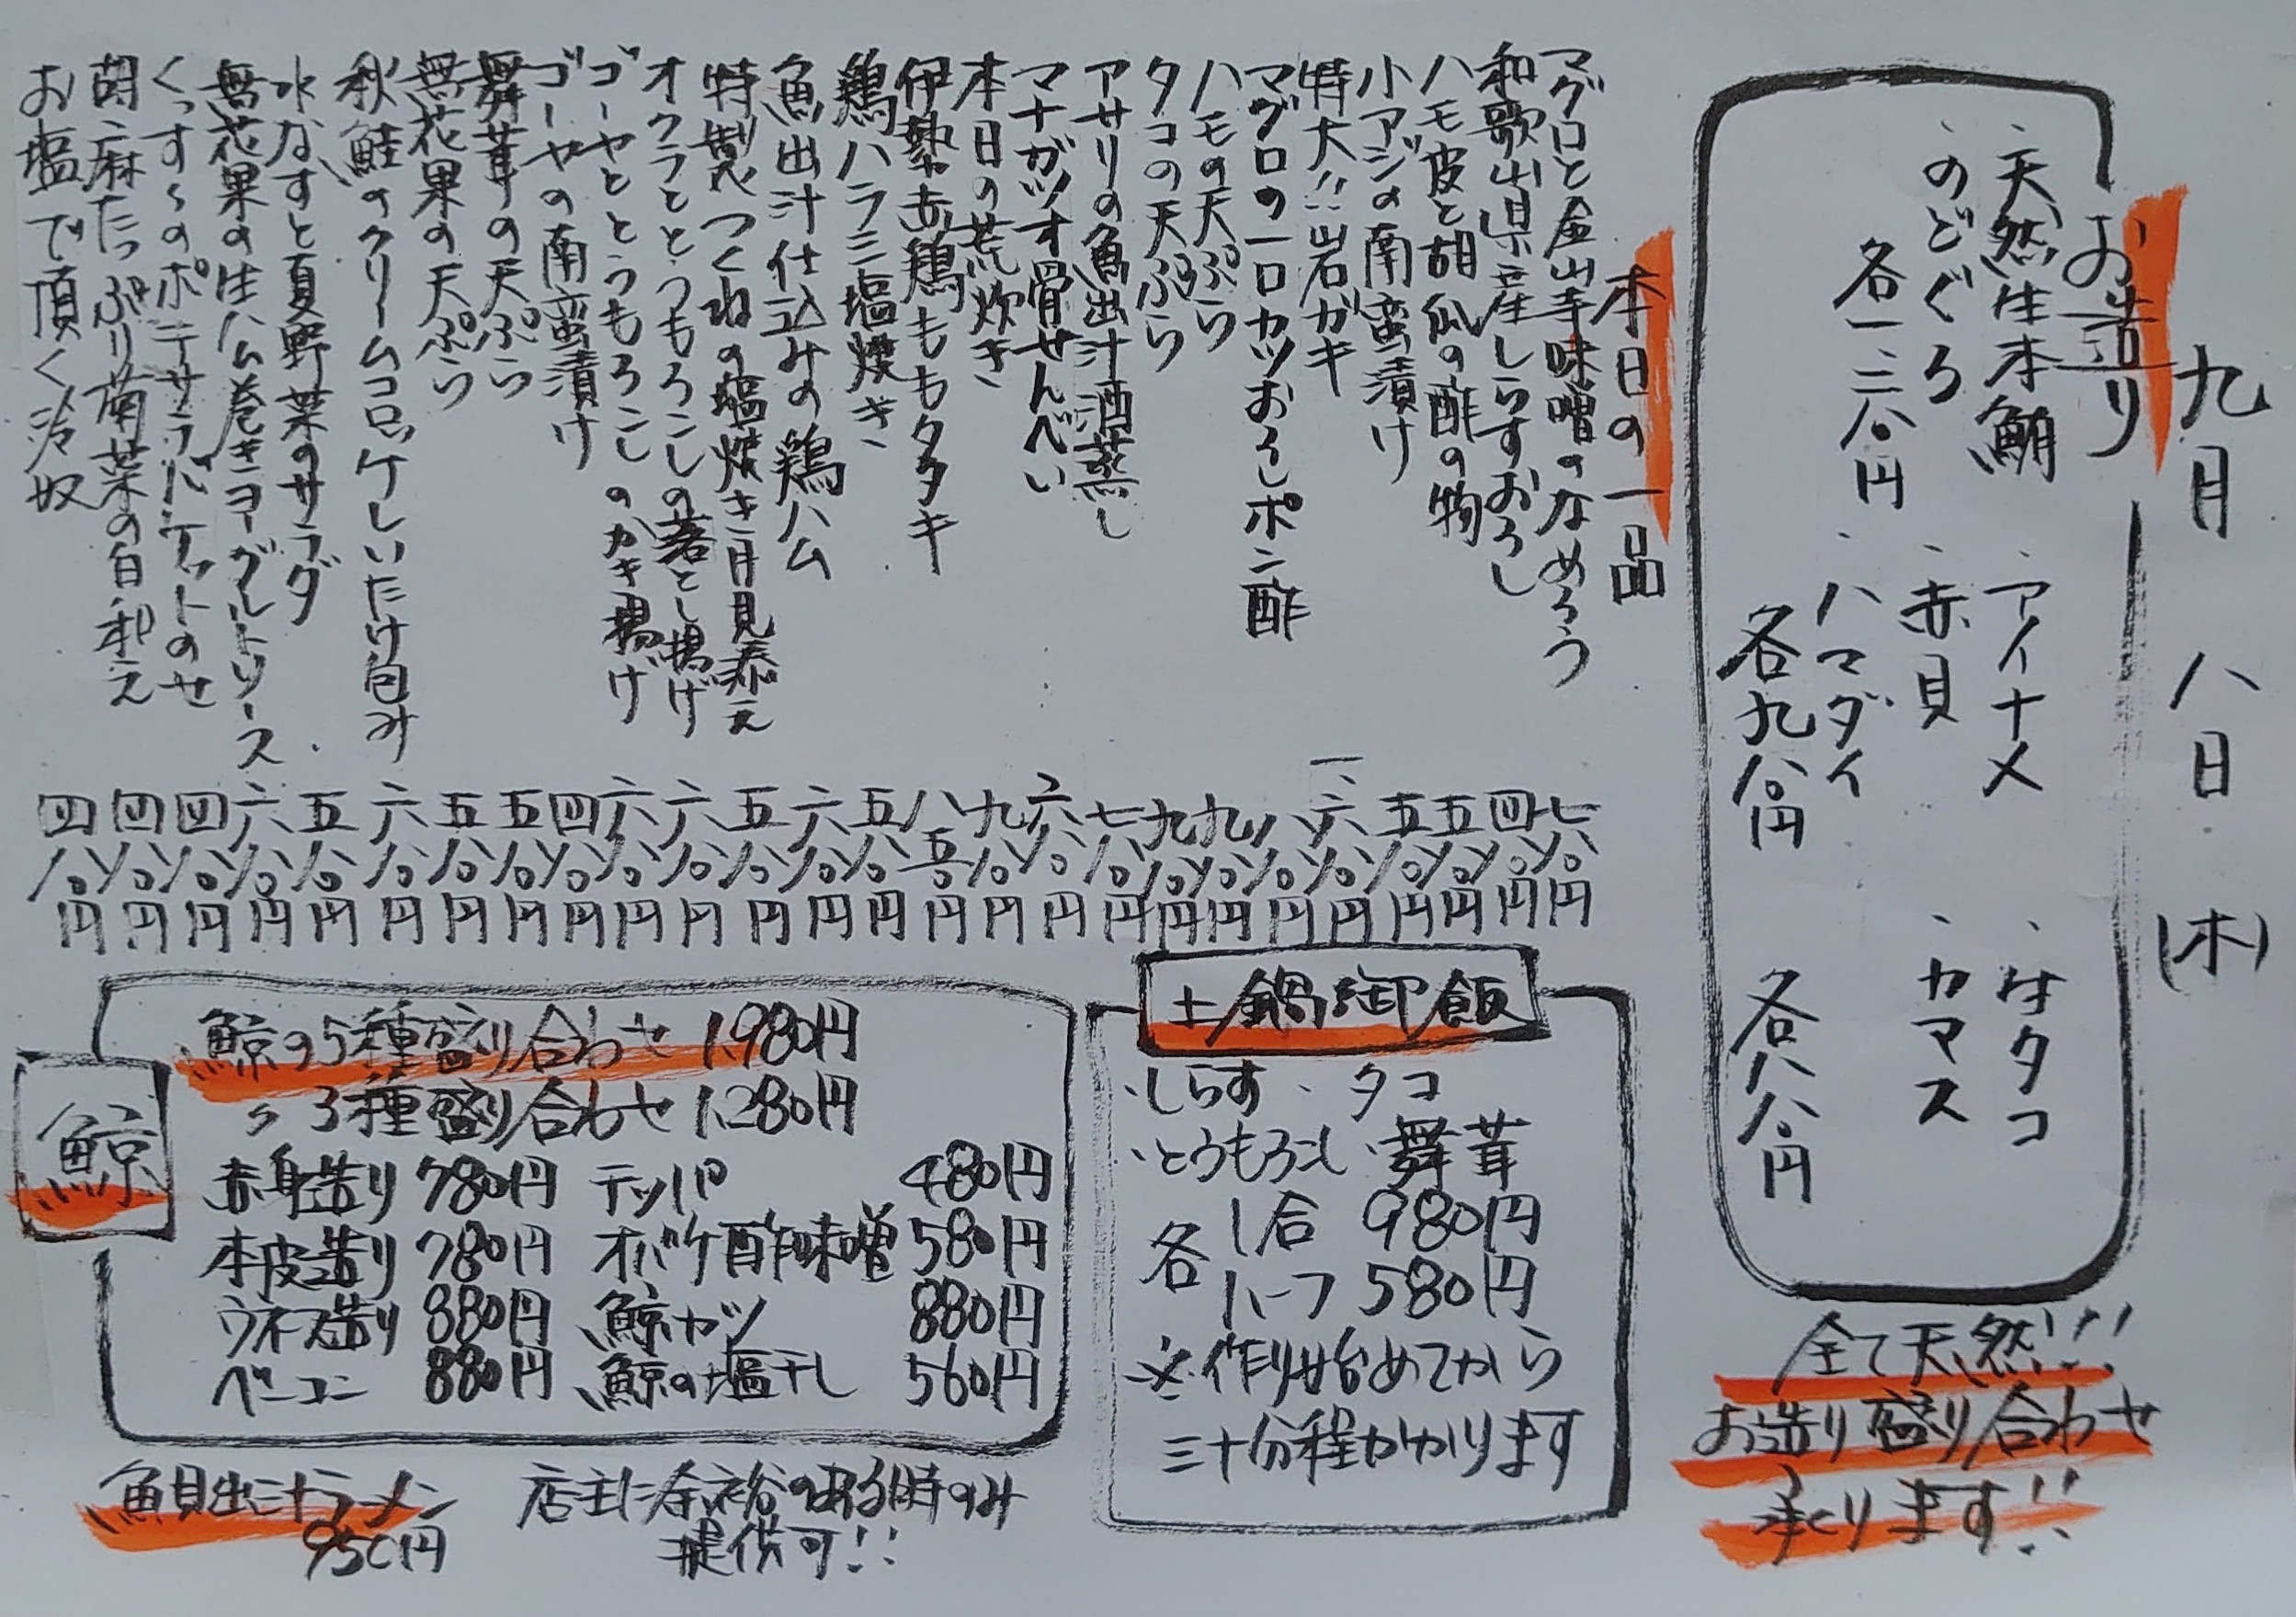 九月八日(木)
お造り
・天然生本鮪
・のどぐろ
各一二八〇円
・アイナメ
・赤貝
・ハマダイ
各九八〇円
・生タコ
・カマス
各八八〇円
全て天然!!
お造り盛り合わせ
承ります!!
本日の一品
マグロと金山寺味噌のなめろう 七八〇円
和歌山県産しらすおろし 四八〇円
ハモ皮と胡瓜の酢の物 五八〇円
小アジの南蛮漬け 五八〇円
特大!!岩ガキ 一、六八〇円
マグロの一口カツおろしポン酢 八八〇円
ハモの天ぷら 九八〇円
タコの天ぷら 九八〇円
アサリの魚出汁酒蒸し 七八〇円
マナガツオ骨せんべい 六八〇円
本日の荒炊き 九八〇円
伊勢赤鶏ももタタキ 八五〇円
鶏ハラミ塩焼き 五八〇円
魚出汁仕込みの鶏ハム 六八〇円
特製つくねの塩焼き月見添え 五八〇円
オクラととうもろこしの落とし揚げ 六八〇円
ゴーヤととうもろこしのかき揚げ 六八〇円
ゴーヤの南蛮漬け 四八〇円
舞茸の天ぷら 五八〇円
無花果の天ぷら 五八〇円
秋鮭のクリームコロッケしいたけ包み 六八〇円
水なすと夏野菜のサラダ 五八〇円
無花果の生ハム巻きヨーグルトソース 六八〇円
くっすぅのポテサラバケットのせ 四八〇円
胡麻たっぷり菊菜の白和え 四八〇円
お塩で頂く冷奴 四八〇円
土鍋御飯
・しらす ・タコ
・とうもろこし ・舞茸
各 1合 980円
ハーフ 580円
※作り始めてから
三十分程かかります
鯨
鯨の5種盛り合わせ 1,980円
〃 3種盛り合わせ 1,280円
赤身造り 780円 テッパ 480円
本皮造り 780円 オバケ酢味噌 580円
ウネス造り 880円 鯨カツ 880円
ベーコン 880円 鯨の塩干し 560円
魚貝出汁ラーメン
950円
店主に余裕のある時のみ
提供可!!